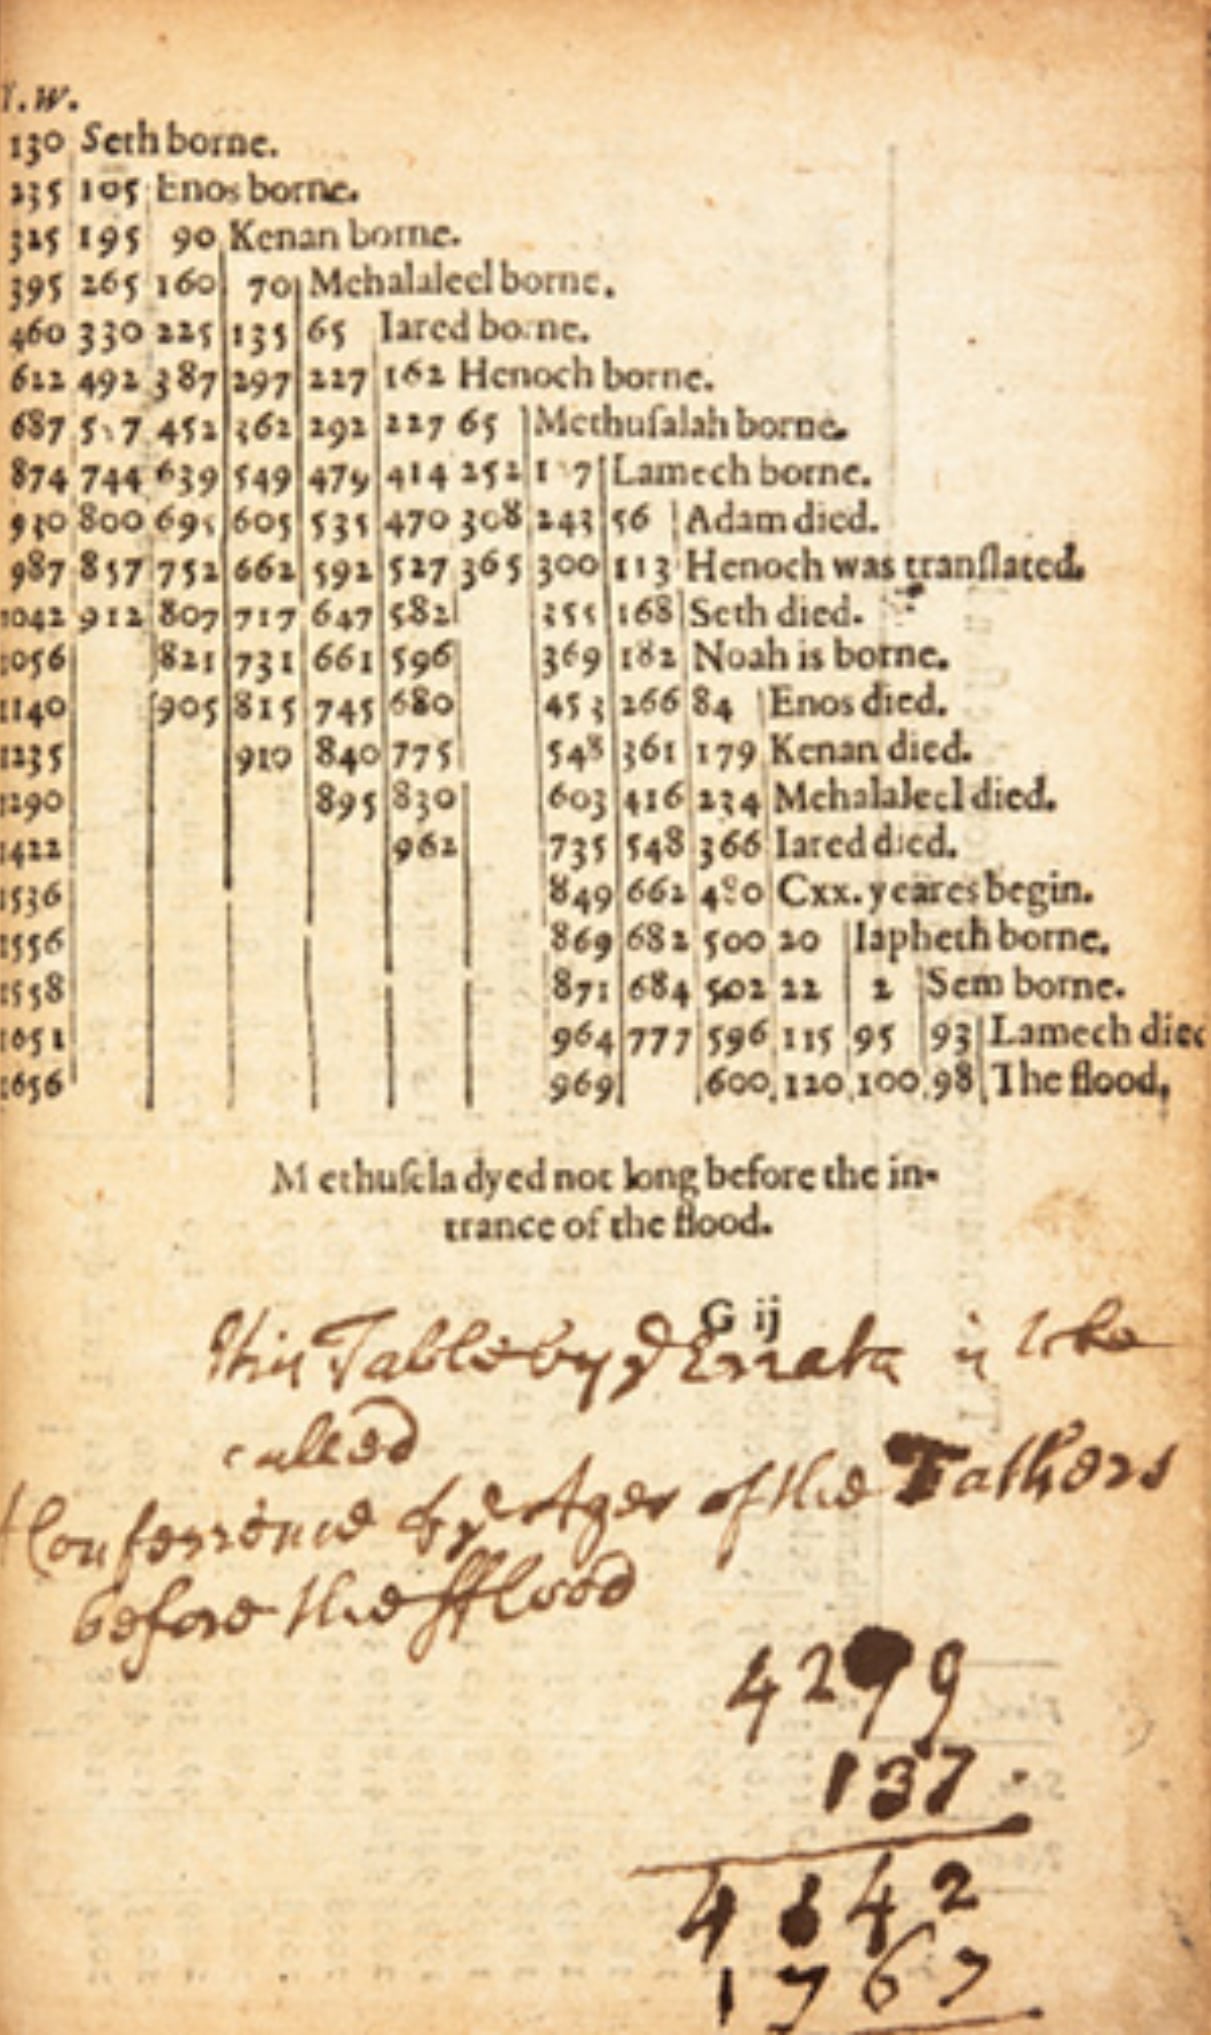 Y.W.
130 Seth borne.
235 105 Enos borne.
325 195 90 Kenan borne.
395 265 160 70 Mehalaleel borne.
460 330 225 135 65 Iared borne.
622 492 387 297 227 162 Henoch borne.
687 5 7 452 362 292 227 65 Methuſalah borne.
874 744 639 549 479 414 252 1 7 Lamech borne.
930 800 695 605 535 470 308 243 56 Adam died.
987 857 752 662 592 527 365 300 113 Henoch was tranſlated.
1042 912 807 717 647 582 355 168 Seth died.
1056 821 731 661 596 369 182 Noah is borne.
1140 905 815 745 680 453 266 84 Enos died.
1235 910 840 775 548 361 179 Kenan died.
1290 895 830 603 416 234 Mehalaleel died.
1422 962 735 548 366 Iared died.
1536 849 662 480 Cxx. yeares begin.
1556 869 682 500 20 Iapheth borne.
1558 871 684 502 22 2 Sem borne.
1651 964 777 596 115 95 93 Lamech died
1656 969 600 120 100 98 The flood,
Methuſela dyed not long before the in-
trance of the flood.
G ij
this Table by ye Errata is to be
called
Conferrence by ye Ages of the Fathers
before the fflood
4299
137
4 4 2
1767